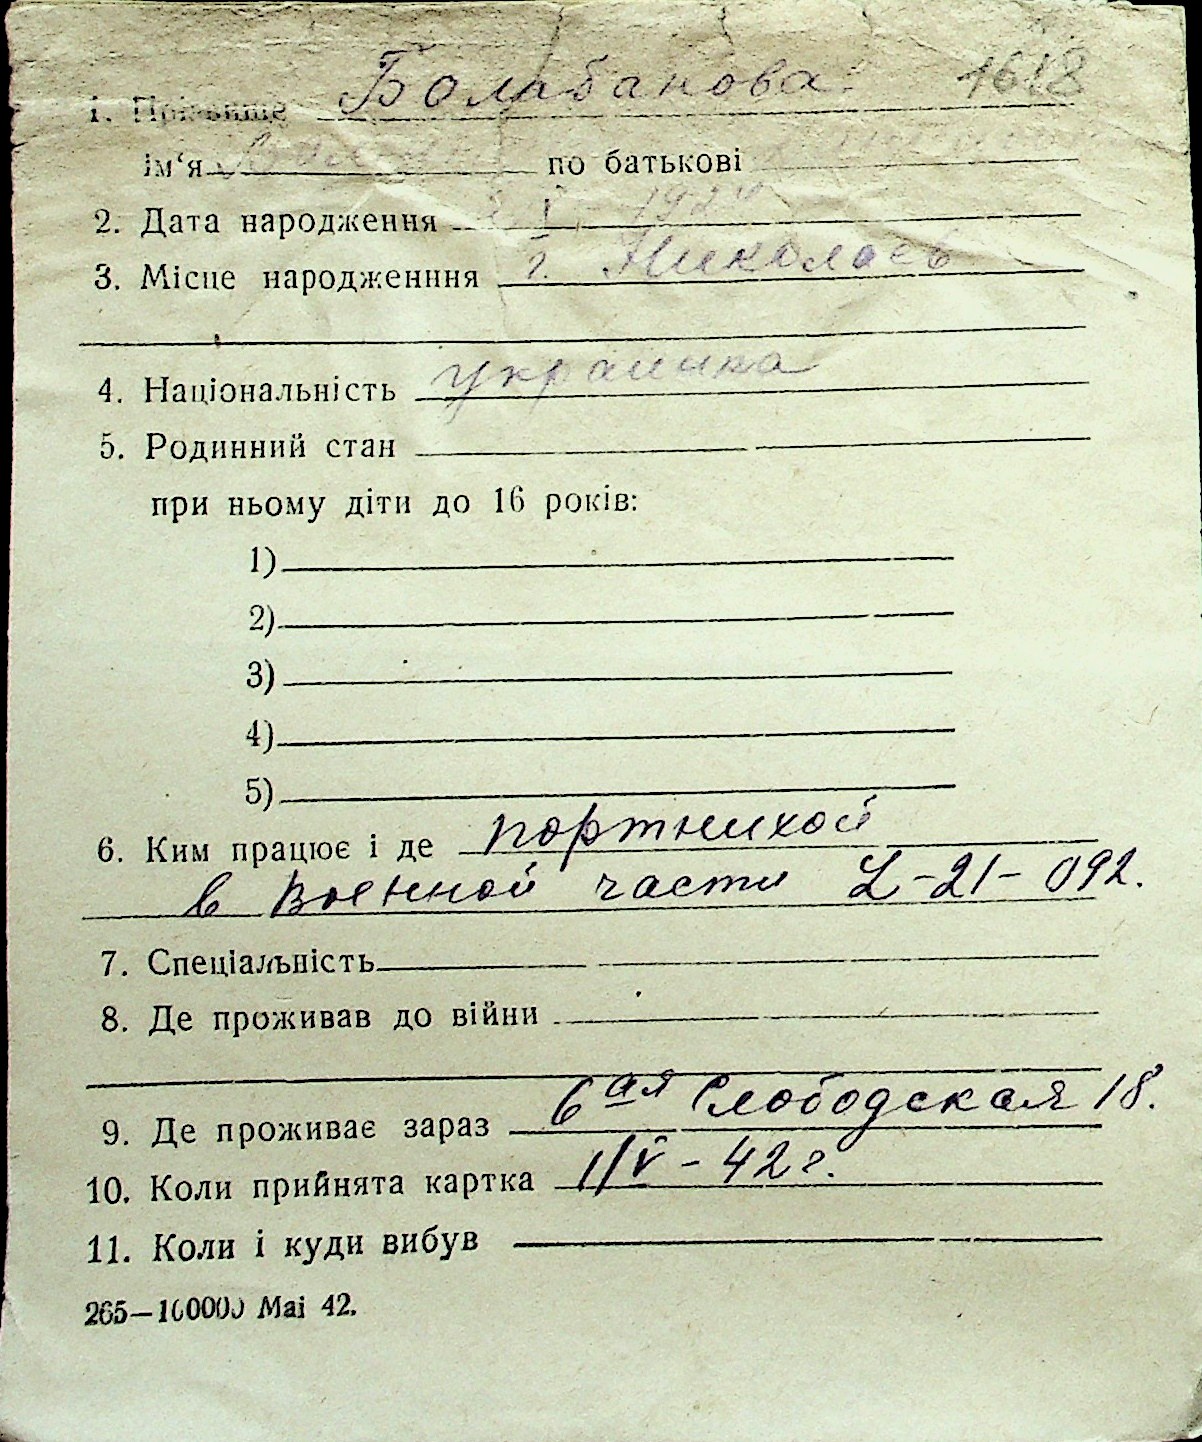 1. Прізвище Болабанова 1618
ім‘я по батькові
2. Дата народження V 192
3. Місце народженння г. Николаев
4. Національність украинка
5. Родинний стан
при ньому діти до 16 років:
1)
2)
3)
4)
5)
6. Ким працює і де портнихой
в военной части L-21-092.
7. Спеціальність
8. Де проживав до війни
9. Де проживає зараз 6ая Слободская 18.
10. Коли прийнята картка 1/V-42 г.
11. Коли і куди вибув
265—100000 Mai 42.